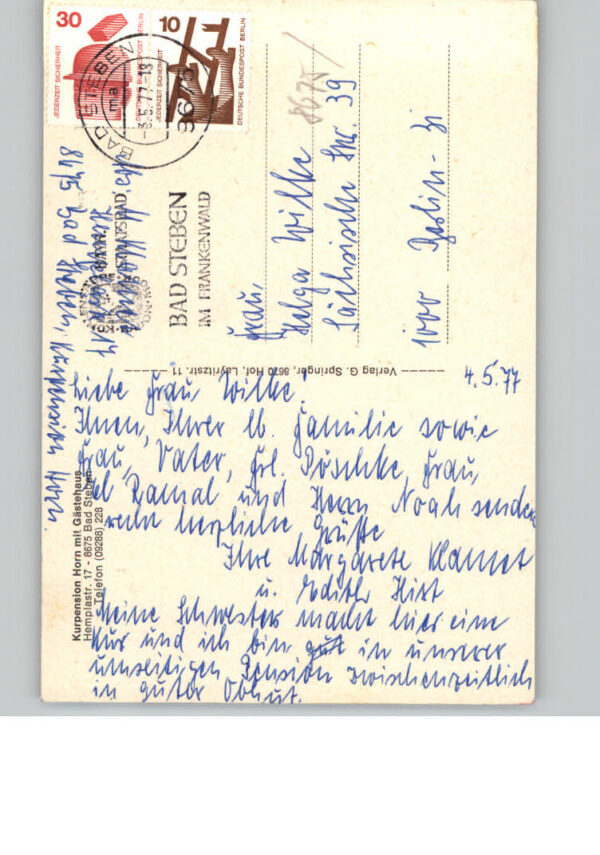 30
JEDERZEIT SICHERHEIT
DEUTSCHE BUNDESPOST BERLIN
10
JEDERZEIT SICHERHEIT
DEUTSCHE BUNDESPOST BERLIN
BAD STEBEN
8675
BAD STEBEN
IM FRANKENWALD
STAATSBAD
8675
8675 Bad Steben, Kurpension Horn
Frau,
Helga Wilke
Sächsische Str. 39
1000 Berlin - 31
Verlag G. Springer, 8670 Hof, Layritzstr. 11
4.5.77
Liebe Frau Wilke!
Ihnen, Ihrer lb. Familie sowie
Frau, Vater, Frl. Pöschke, Frau,
el Ramal und Herrn Noah senden
recht herzliche Grüße
Ihre Margarete Klamet
u. Edith Hirt
Meine Schwester macht hier eine
Kur und ich bin gut in unserer
umseitigen Pension zwischenzeitlich
in guter Obhut.
Kurpension Horn mit Gästehaus
Hemplastr. 17 - 8675 Bad Steben
Telefon (09288) 228